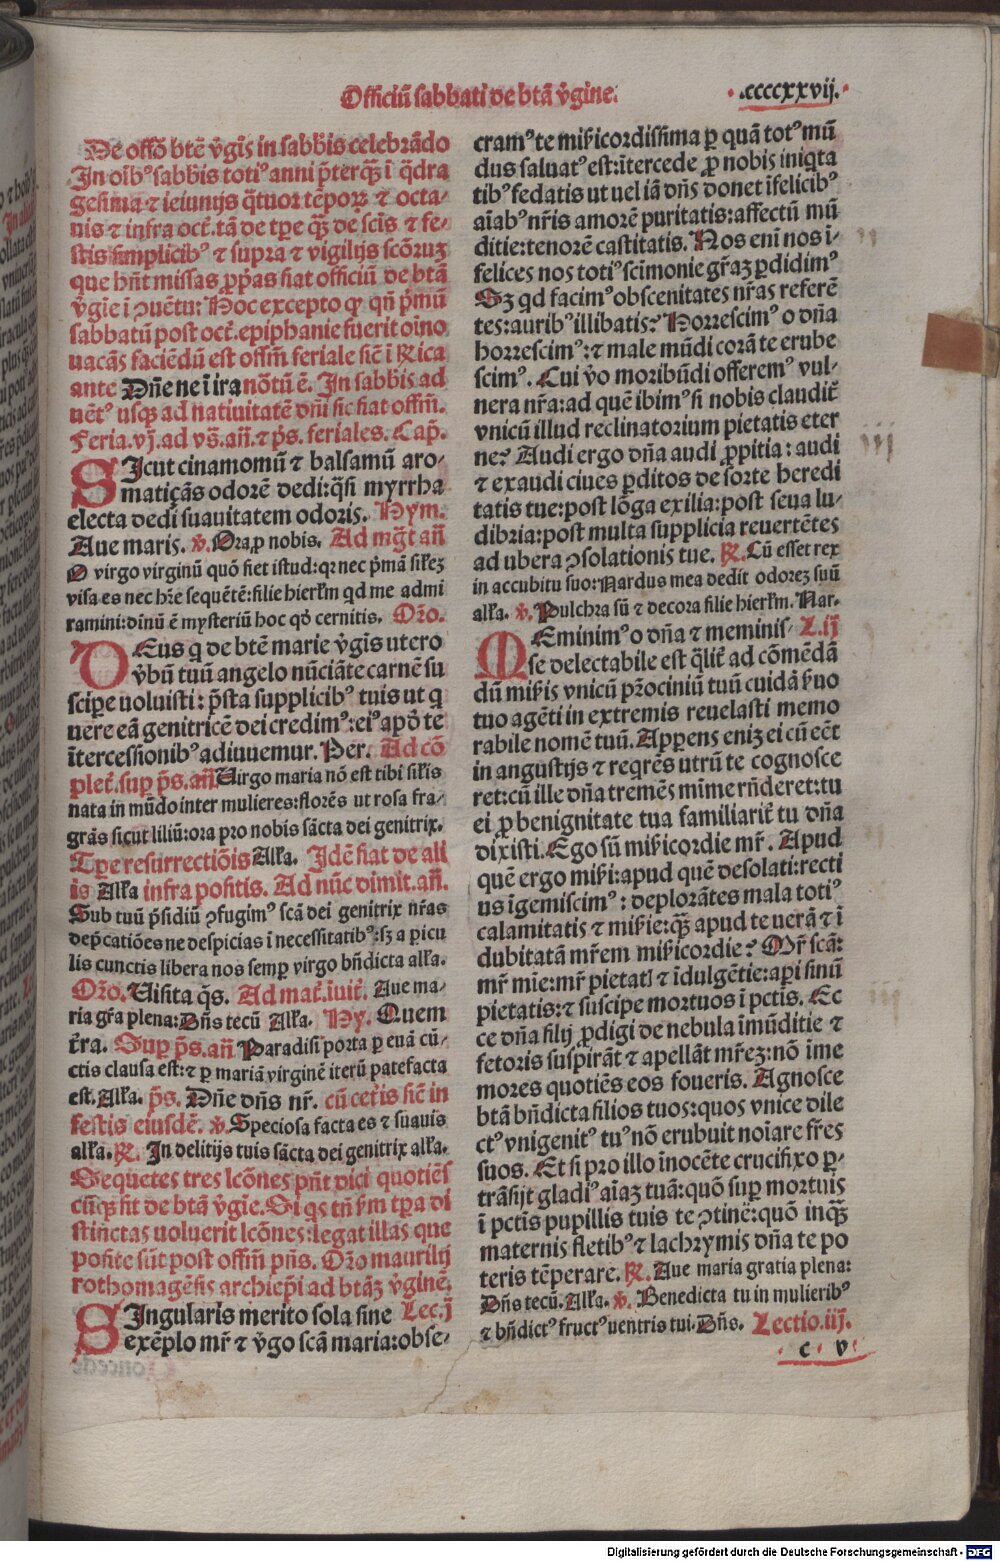 Officiū sabbati de btā v̄gine.
.ccccxxvij.
De offō btē v̄gīs in sabbīs celebrādo
In oībꝰ sabbīs totiꝰ anni p̄terqꝫ ī q̄dra
gesima ⁊ ieiunijs q̄tuor tēpoꝝ ⁊ octa⸗
uis ⁊ infra oct̄. tā de tp̄e qꝫ de scīs ⁊ fe⸗
stis simplicibꝰ ⁊ supra ⁊ vigilijs scōruꝫ
que hn̄t missas ꝓpͥas fiat officiū de btā
v̄gīe ī ꝯuētu: Hoc excepto ꝙ qn̄ p̄mū
sabbatū post oct̄. epiphanie fuerit oīno
uacās faciēdū est offm̄ feriale sic̄ ī Rica
ante Dn̄e ne ī ira nōtū ē. In sabbīs ad
uēt̄ꝰ usqꝫ ad natiuitatē dn̄i sic fiat offm̄.
Feria. vj. ad vs̄. an̄. ⁊ p̄s. feriales. Cap̄.
SIcut cinamomū ⁊ balsamū aro⸗
matiçās odorē dedi: q̄si myrrha
electa dedi suauitatem odoris. Hym.
Aue maris. v̄. Ora ꝓ nobis. Ad mḡt an̄
O virgo virginū quō fiet istud: qꝛ nec p̄mā sil̄eꝫ
visa es nec hr̄e sequētē: filie hierl̄m qd me admi
ramini: diuinū ē mysteriū hoc qd̄ cernitis. Orō.
DEus q de btē marie v̄gīs utero
v̄bū tuū angelo nūciāte carnē su
scipe uoluisti: p̄sta supplicibꝰ tuis ut q
uere eā genitricē dei credimꝰ: eiꝰ apd̄ te
ītercessionibꝰ adiuuemur. Per. Ad cō
plet̄. suꝑ p̄s. an̄. Virgo maria nō est tibi sil̄is
nata in mūdo inter mulieres: florēs ut rosa fra⸗
grās sicut liliū: ora pro nobis sācta dei genitrix.
Tꝑe resurrectiōis All̄a. Idē fiat de ali
is All̄a infra positis. Ad nūc dimit. an̄.
Sub tuū p̄sidiū ꝯfugimꝰ scā dei genitrix nr̄as
dep̄catiōes ne despicias ī necessitatibꝰ: sꝫ a ꝑicu
lis cunctis libera nos semꝑ virgo bn̄dicta all̄a.
Orō. Uisita q̄s. Ad mat̄. īuit̄. Aue ma⸗
ria gr̄a plena: Dn̄s tecū All̄a. Hy. Quem
t̄ra. Suꝑ p̄s. an̄ Paradisi porta ꝑ euā cū⸗
ctis clausa est: ⁊ ꝑ mariā virginē iterū patefacta
est. All̄a. p̄s. Dn̄e dn̄s nr̄. cū cet̄is sic̄ in
festis eiusdē. v̄. Speciosa facta es ⁊ suauis
all̄a. ℟. In delitijs tuis sācta dei genitrix all̄a.
Sequetes tres lcōnes pn̄t dici quotiēs
cūqꝫ fit de btā v̄gīe. Si qs tn̄ s̄m tp̄ra di
stīctas uoluerit lcōnes: legat illas que
posite sūt post offm̄ pn̄s. Orō maurilij
rothomagēsis archiep̄i ad btāꝫ v̄ginē.
SIngularis merito sola sine Lec. j
exēplo mr̄ ⁊ v̄go scā maria: obse⸗
cramꝰ te mīsicordissima ꝑ quā totꝰ mū
dus saluatꝰ est: ītercede ꝓ nobis iniqta
tibꝰ fedatis ut uel iā dn̄s donet īfelicibꝰ
aīabꝰ nr̄is amorē puritatis: affectū mū
ditie: tenorē castitatis. Nos enī nos ī⸗
felices nos totiꝰ scimonie gr̄aꝫ ꝑdidimꝰ
Sꝫ qd facimꝰ obscenitates nr̄as referē
tes: auribꝰ illibatis? Horrescimꝰ o dn̄a
horrescimꝰ: ⁊ male mūdi corā te erube
scimꝰ. Cui v̄o moribūdi offeremꝰ vul⸗
nera nr̄a: ad quē ibimꝰ si nobis claudit̄
vnicū illud reclinatorium pietatis eter
ne? Audi ergo dn̄a audi ꝓpitia: audi
⁊ exaudi ciues ꝑditos de sorte heredi
tatis tue: post lōga exilia: post seua lu⸗
dibria: post multa supplicia reuertētes
ad ubera ꝯsolationis tue. ℟. Cū esset rex
in accubitu suo: Nardus mea dedit odoreꝫ suū
all̄a. v̄. Pulchra sū ⁊ decora filie hierl̄m. Nar.
MEminimꝰ o dn̄a ⁊ meminis⸗ L.ij
se delectabile est q̄lit̄ ad cōmēdā
dū mīsis vnicū pr̄ociniū tuū cuidā s̄uo
tuo agēti in extremis reuelasti memo
rabile nomē tuū. Apparens enīꝫ ei cū eēt
in angustijs ⁊ reqrēs utrū te cognosce
ret: cū ille dn̄a tremēs mīme rn̄deret: tu
ei ꝓ benignitate tua familiarit̄ tu dn̄a
dixisti. Ego sū mīsicordie mr̄. Apud
quē ergo mīsi: apud quē desolati: recti
us īgemiscimꝰ: deplorātes mala totiꝰ
calamitatis ⁊ mīsie: qꝫ apud te uerā ⁊ ī
dubitatā mr̄em mīsicordie? Mr̄ scā:
mr̄ mīe: mr̄ pietatꝭ ⁊ īdulgētie: aꝑi sinū
pietatis: ⁊ suscipe mortuos ī pctīs. Ec
ce dn̄a filij ꝓdigi de nebula īmūditie ⁊
fetoris suspirāt ⁊ apellāt mr̄eꝫ: nō īme
mores quotiēs eos foueris. Agnosce
btā bn̄dicta filios tuos: quos vnice dile
ctꝰ vnigenitꝰ tuꝰ nō erubuit noīare fr̄es
suos. Et si pro illo īnocēte crucifixo ꝑ⸗
trāsijt gladiꝰ aīaꝫ tuā: quō suꝑ mortuis
ī pctīs pupillis tuis te ꝯtinē: quō inqꝫ
maternis fletibꝰ ⁊ lachrymis dn̄a te po
teris tēperare. ℟. Aue maria gratia plena:
Dn̄s tecū. All̄a. v̄. Benedicta tu in mulieribꝰ
⁊ bn̄dictꝰ fructꝰ uentris tui. Dn̄s. Lectio. iij.
c v
Digitalisierung gefördert durch die Deutsche Forschungsgemeinschaft - DFG